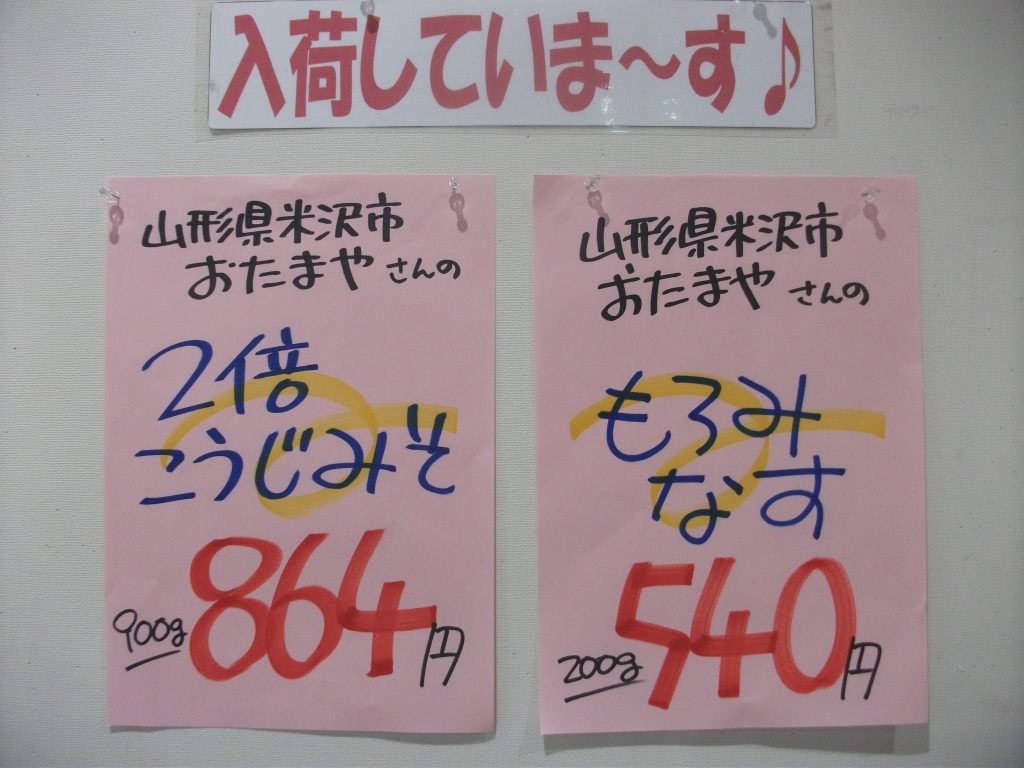 入荷していま～す♪
山形県米沢市
おたまやさんの
2倍
こうじみそ
900g 864円
山形県米沢市
おたまやさんの
もろみ
なす
200g 540円